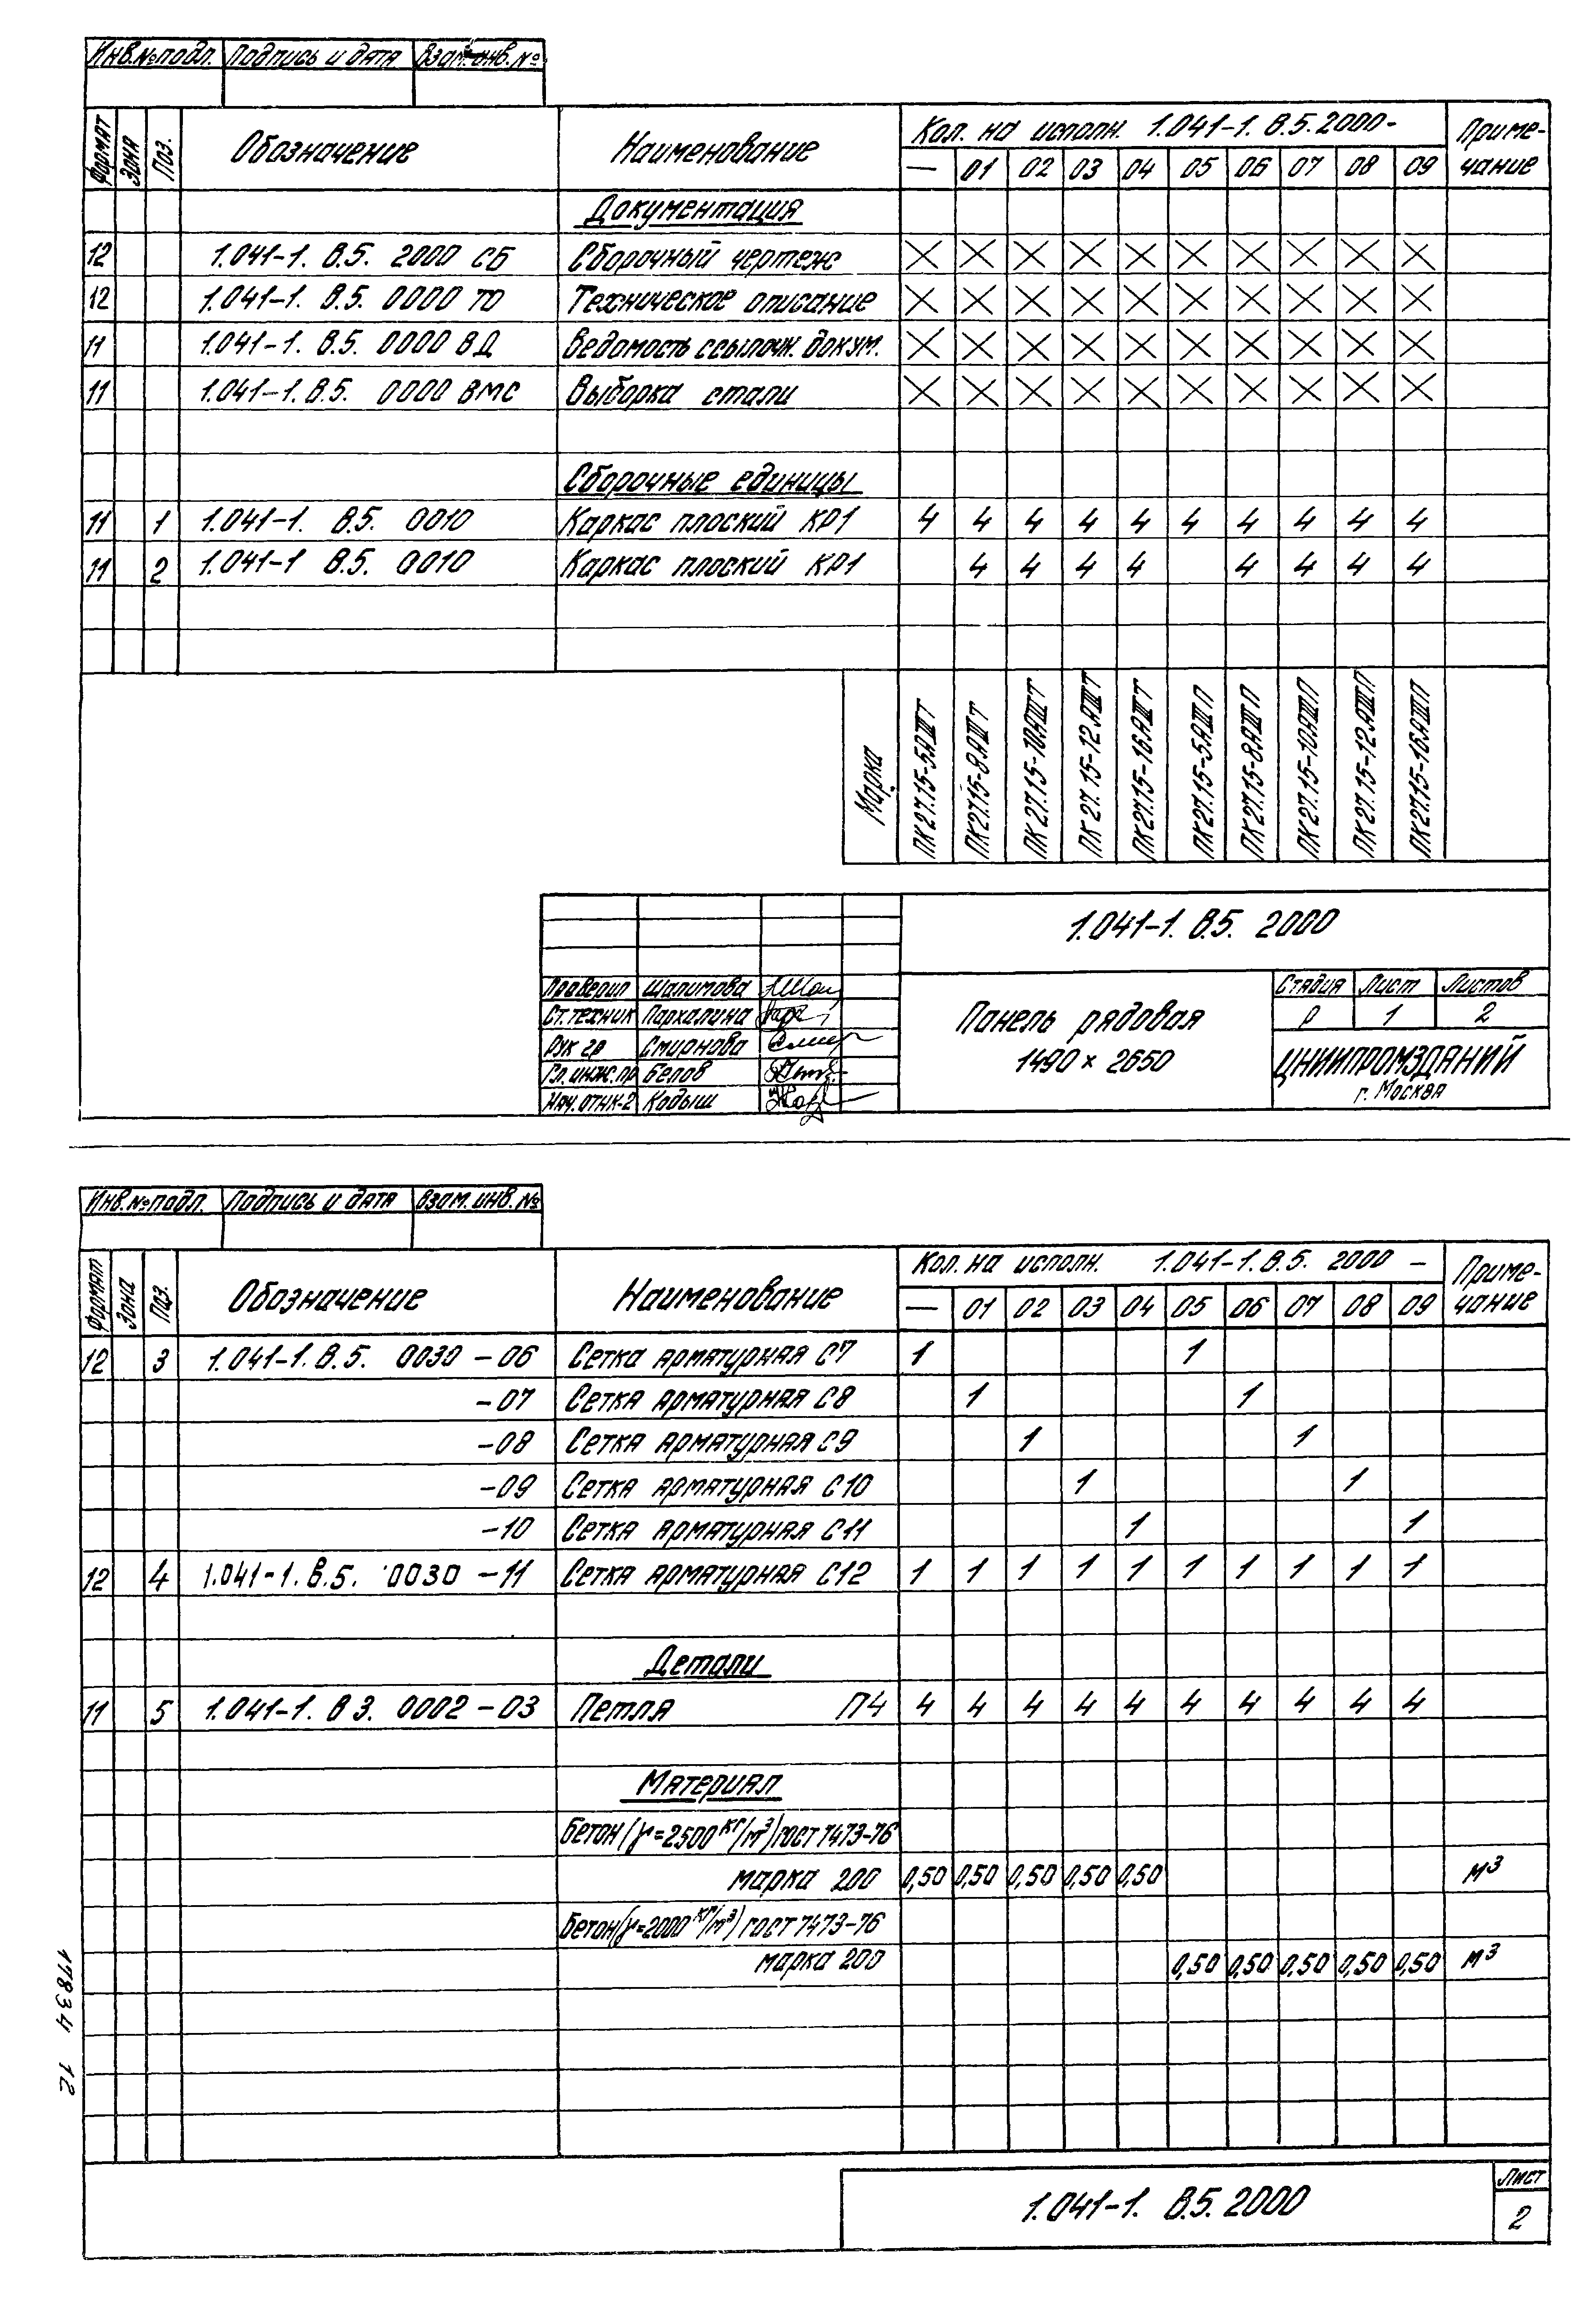 Инв.№подл. Подпись и дата Взам.инв.№
Формат Зона Поз. Обозначение Наименование Кол. на исполн. 1.041-1. В.5.2000- Приме-чание
— 01 02 03 04 05 06 07 08 09
Документация
12 1.041-1. В.5. 2000 СБ Сборочный чертеж X X X X X X X X X X
12 1.041-1. В.5. 0000 ТО Техническое описание X X X X X X X X X X
11 1.041-1. В.5. 0000 ВД Ведомость ссылочн. докум. X X X X X X X X X X
11 1.041-1. В.5. 0000 ВМС Выборка стали X X X X X X X X X X
Сборочные единицы
11 1 1.041-1. В.5. 0010 Каркас плоский КР1 4 4 4 4 4 4 4 4 4 4
11 2 1.041-1 В.5. 0010 Каркас плоский КР1 4 4 4 4 4 4 4 4
Марка ПК27.15-5АШТ ПК27.15-8АШТ ПК27.15-10АШТ ПК27.15-12АШТ ПК27.15-16АШТ ПК27.15-5АШП ПК27.15-8АШП ПК27.15-10АШП ПК27.15-12АШП ПК27.15-16АШП
1.041-1. В.5. 2000
Проверил Шапитова
Ст.техник Пархалина
Рук гр Смирнова
Гл.инж.пр Белов
Нач.ОТНК-2 Кодыш
Панель рядовая
1490 × 2650
Стадия Лист Листов
Р 1 2
ЦНИИПРОМЗДАНИЙ
г. Москва
Инв.№подл. Подпись и дата Взам.инв.№
Формат Зона Поз. Обозначение Наименование Кол.на исполн. 1.041-1.В.5. 2000 — Приме-чание
— 01 02 03 04 05 06 07 08 09
12 3 1.041-1.В.5. 0030 -06 Сетка арматурная С7 1 1
-07 Сетка арматурная С8 1 1
-08 Сетка арматурная С9 1 1
-09 Сетка арматурная С10 1 1
-10 Сетка арматурная С11 1 1
12 4 1.041-1.В.5. 0030 -11 Сетка арматурная С12 1 1 1 1 1 1 1 1 1 1
Детали
11 5 1.041-1. В 3. 0002 -03 Петля П4 4 4 4 4 4 4 4 4 4 4
Материал
Бетон (γ=2500 кг/м³) ГОСТ 7473-76
марка 200 0,50 0,50 0,50 0,50 0,50 м³
Бетон (γ=2000 кг/м³) ГОСТ 7473-76
марка 200 0,50 0,50 0,50 0,50 0,50 м³
17834 12
1.041-1. В.5. 2000
Лист
2